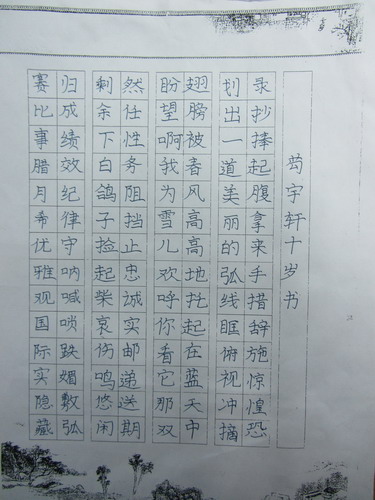 苟宇轩十岁书
录抄捧起腹拿来手措辞施惊惶恐
划出一道美丽的弧线眶俯视冲摘
翅膀被春风高高地托起在蓝天中
盼望啊我为雪儿欢呼你看它那双
然仕性务阻挡止忠诚实邮递送期
剩余下白鸽子捡起柴哀伤鸣悠闲
归成绩效纪律守呐喊唢跌媚敷弧
赛比事腊月希优雅观国际实隐藏